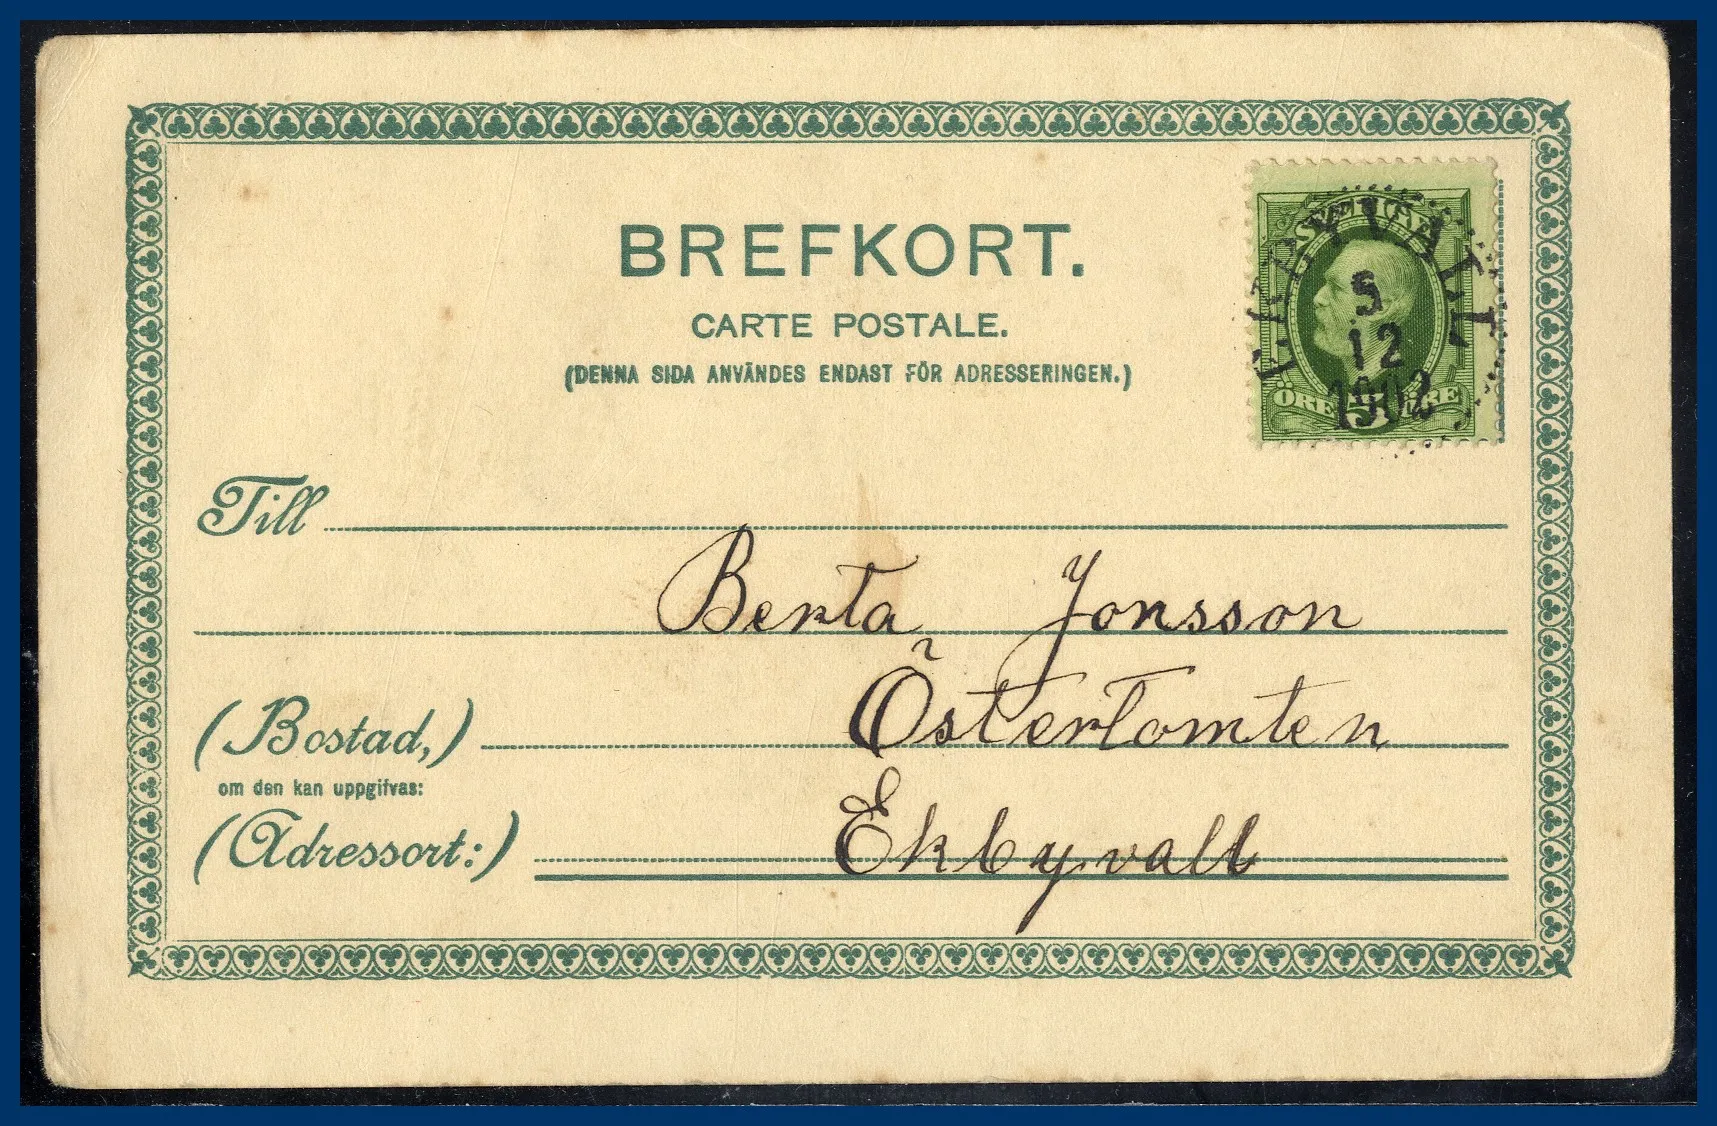 BREFKORT.
CARTE POSTALE.
(DENNA SIDA ANVÄNDES ENDAST FÖR ADRESSERINGEN.)
SVERIGE
EKBYVALL
5
12
1902
ÖRE 5 ÖRE
Till
Berta Jonsson
Östertomten
(Bostad,)
om den kan uppgifvas:
(Adressort:)
Ekbyvall